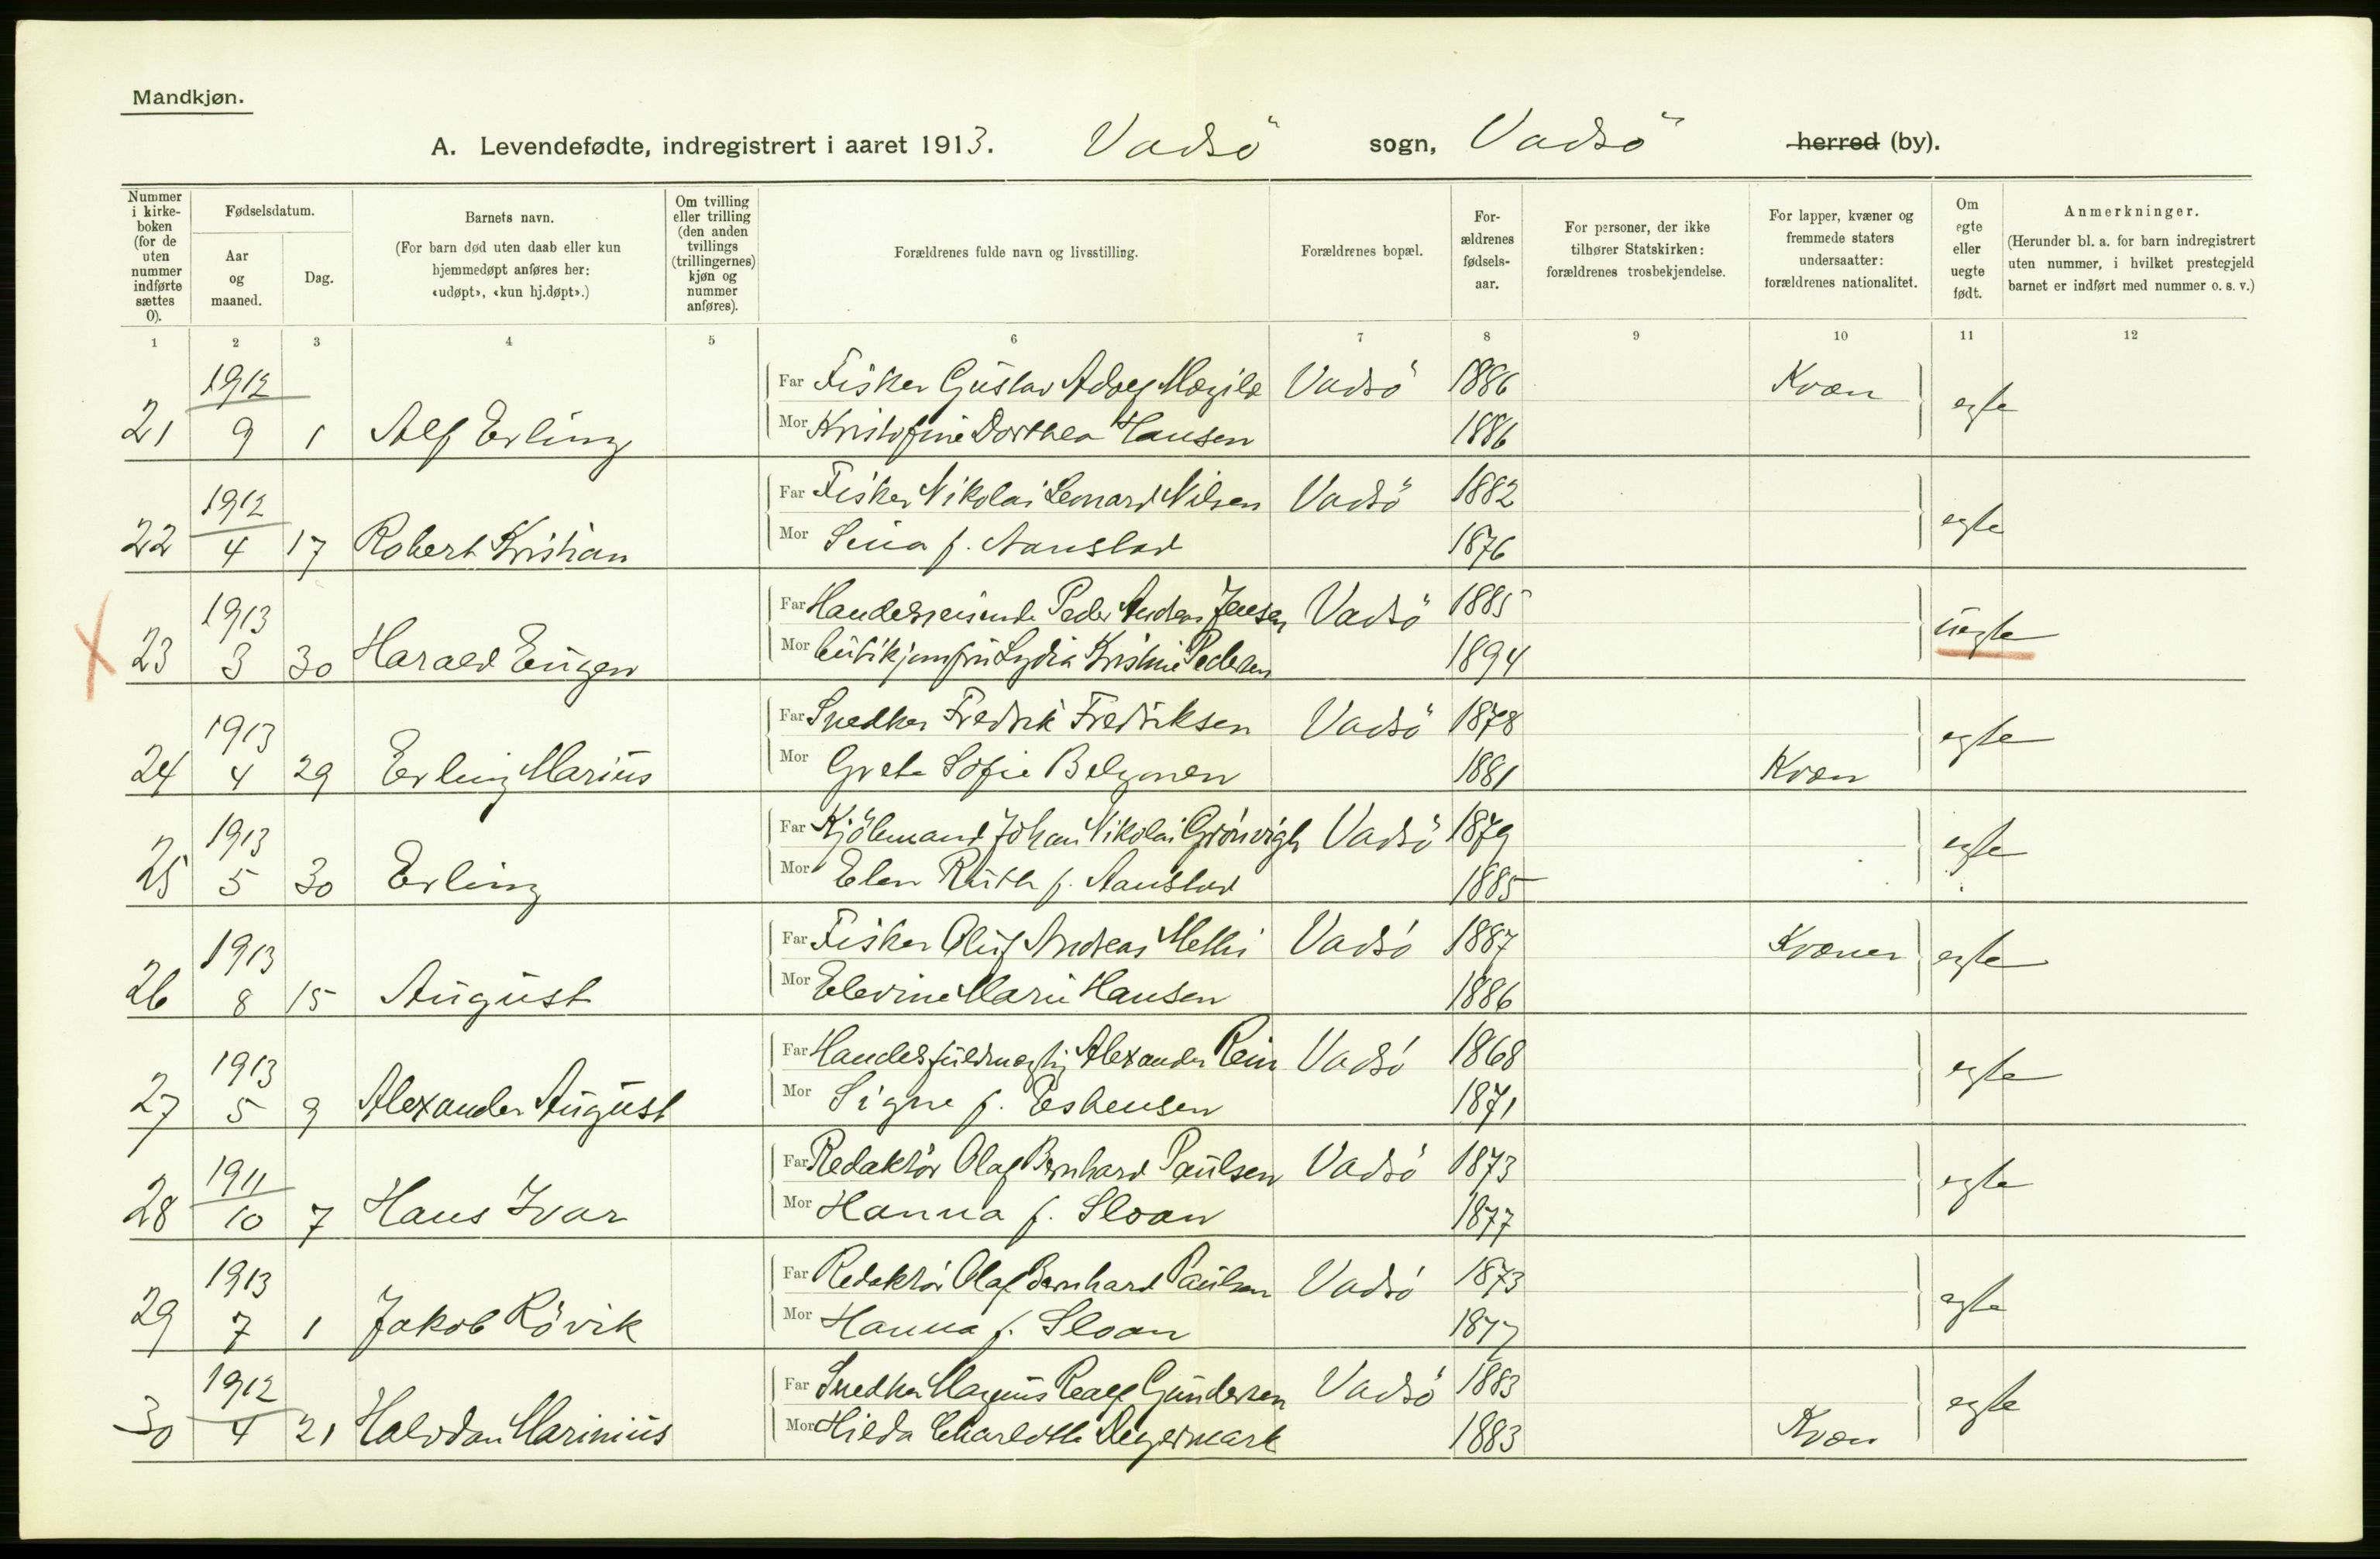 Mandkjøn.
A. Levendefødte, indregistrert i aaret 1913. Vadsö sogn, Vadsö herred (by).
Nummer i kirke-boken (for de uten nummer indførte sættes 0).
Fødselsdatum.
Aar og maaned.
Dag.
Barnets navn.
(For barn død uten daab eller kun hjemmedøpt anføres her: «udøpt», «kun hj.døpt».)
Om tvilling eller trilling (den anden tvillings (trillingernes) kjøn og nummer anføres).
Forældrenes fulde navn og livsstilling.
Forældrenes bopæl.
For-ældrenes fødsels-aar.
For personer, der ikke tilhører Statskirken: forældrenes trosbekjendelse.
For lapper, kvæner og fremmede staters undersaatter: forældrenes nationalitet.
Om egte eller uegte født.
Anmerkninger.
(Herunder bl. a. for barn indregistrert uten nummer, i hvilket prestegjeld barnet er indført med nummer o. s. v.)
1 2 3 4 5 6 7 8 9 10 11 12
1912 Far Fisker Gustav Adolf Vadsö 1886 Kvæn egte
21 9 1 Alf Erling Mor Kristofine Dorthea Hansen 1886
1912 Far Fisker Nikolai Leonard Nilsen Vadsö 1882 egte
22 4 17 Robert Kristian Mor f. Aanstad 1876
1913 Far Handelsreisende Peder Andreas Jensen Vadsö 1885 uegte
23 3 30 Harald Eugen Mor Butikjomfru Lydia Kristine Pedersen 1894
1913 Far Snedker Fredrik Fredriksen Vadsö 1878 egte
24 4 29 Erling Marius Mor Grete Sofie 1881 Kvæn
1913 Far Kjölmand Johan Nikolai Grönvigh Vadsö 1879 egte
25 5 30 Erling Mor Elen Ruth f. Aanstad 1885
1913 Far Fisker Oluf Andreas Vadsö 1887 Kvæner egte
26 8 15 August Mor Elevine Marie Hansen 1886
1913 Far Handelsfuldmægtig Alexander Rein Vadsö 1868 egte
27 5 9 Alexander August Mor Signe f. Esbensen 1871
1911 Far Redaktör Olaf Bernhard Paulsen Vadsö 1873 egte
28 10 7 Hans Ivar Mor Hanna f. Sloan 1877
1913 Far Redaktör Olaf Bernhard Paulsen Vadsö 1873 egte
29 7 1 Jakob Rövik Mor Hanna f. Sloan 1877
1912 Far Snedker Magnus Gundersen Vadsö 1883 egte
30 4 21 Halvdan Marinius Mor Hilda Charlotte Degermark 1883 Kvæn